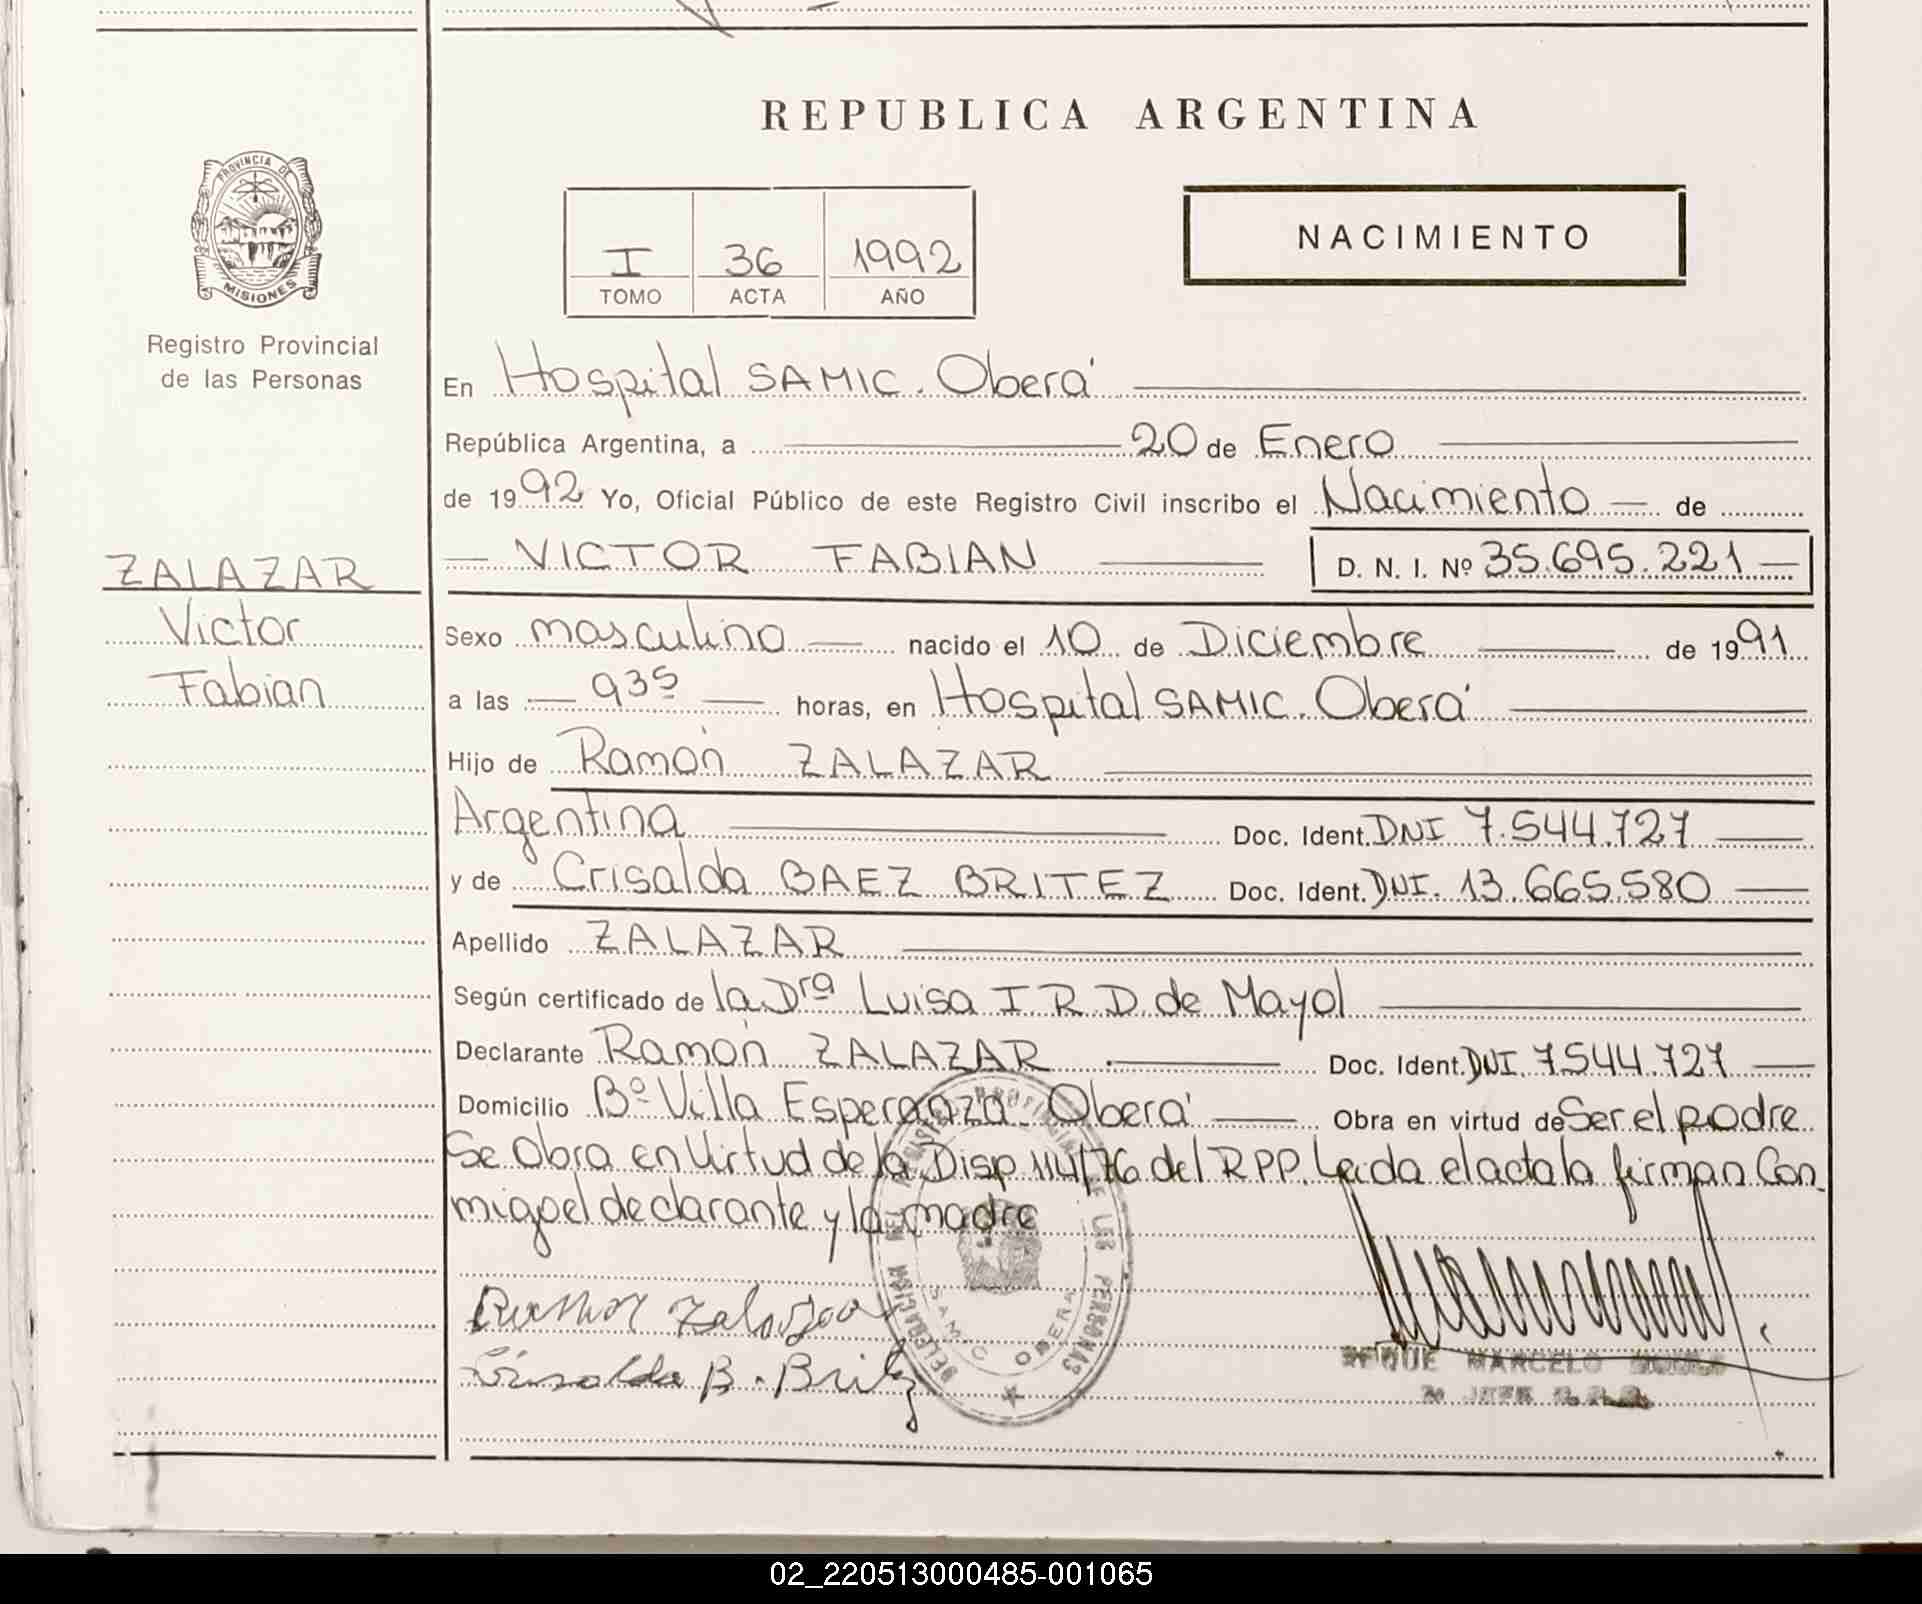 REPUBLICA ARGENTINA
PROVINCIA DE
MISIONES
Registro Provincial
de las Personas
I 36 1992
TOMO ACTA AÑO
NACIMIENTO
En Hospital SAMIC. Oberá
República Argentina, a 20 de Enero
de 1992 Yo, Oficial Público de este Registro Civil inscribo el Nacimiento — de
ZALAZAR
Victor
Fabian
— VICTOR FABIAN — D. N. I. Nº 35.695.221 —
Sexo masculino — nacido el 10 de Diciembre — de 1991
a las — 935 — horas, en Hospital SAMIC. Oberá
Hijo de Ramón ZALAZAR
Argentina — Doc. Ident. DNI 7.544.727 —
y de Crisalda BAEZ BRITEZ Doc. Ident. DNI. 13.665.580 —
Apellido ZALAZAR
Según certificado de la Dra Luisa I.R.D. de Mayol
Declarante Ramón ZALAZAR — Doc. Ident. DNI. 7.544.727 —
Domicilio Bº Villa Esperanza. Oberá — Obra en virtud de Ser el padre
Se Obra en Virtud de la Disp. 114/76 del RPP. Leida el acta la firman Con
migo el declarante y la madre
Ramon Zalazar
Crisalda B. Britez
DELEGACION DEL REGISTRO PROVINCIAL DE LAS PERSONAS
SAMIC OBERA
ROQUE MARCELO
02_220513000485-001065